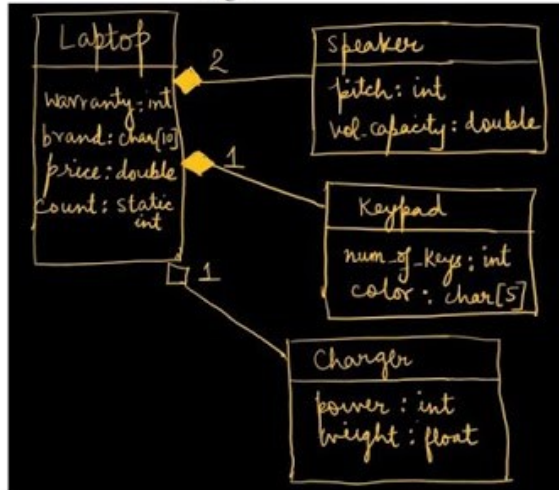 Laptop
warranty: int
brand: char[10]
price: double
count: static
int
2
1
1
Speaker
pitch: int
vol_capacity: double
Keypad
num_of_keys: int
color: char[5]
Charger
power: int
weight: float